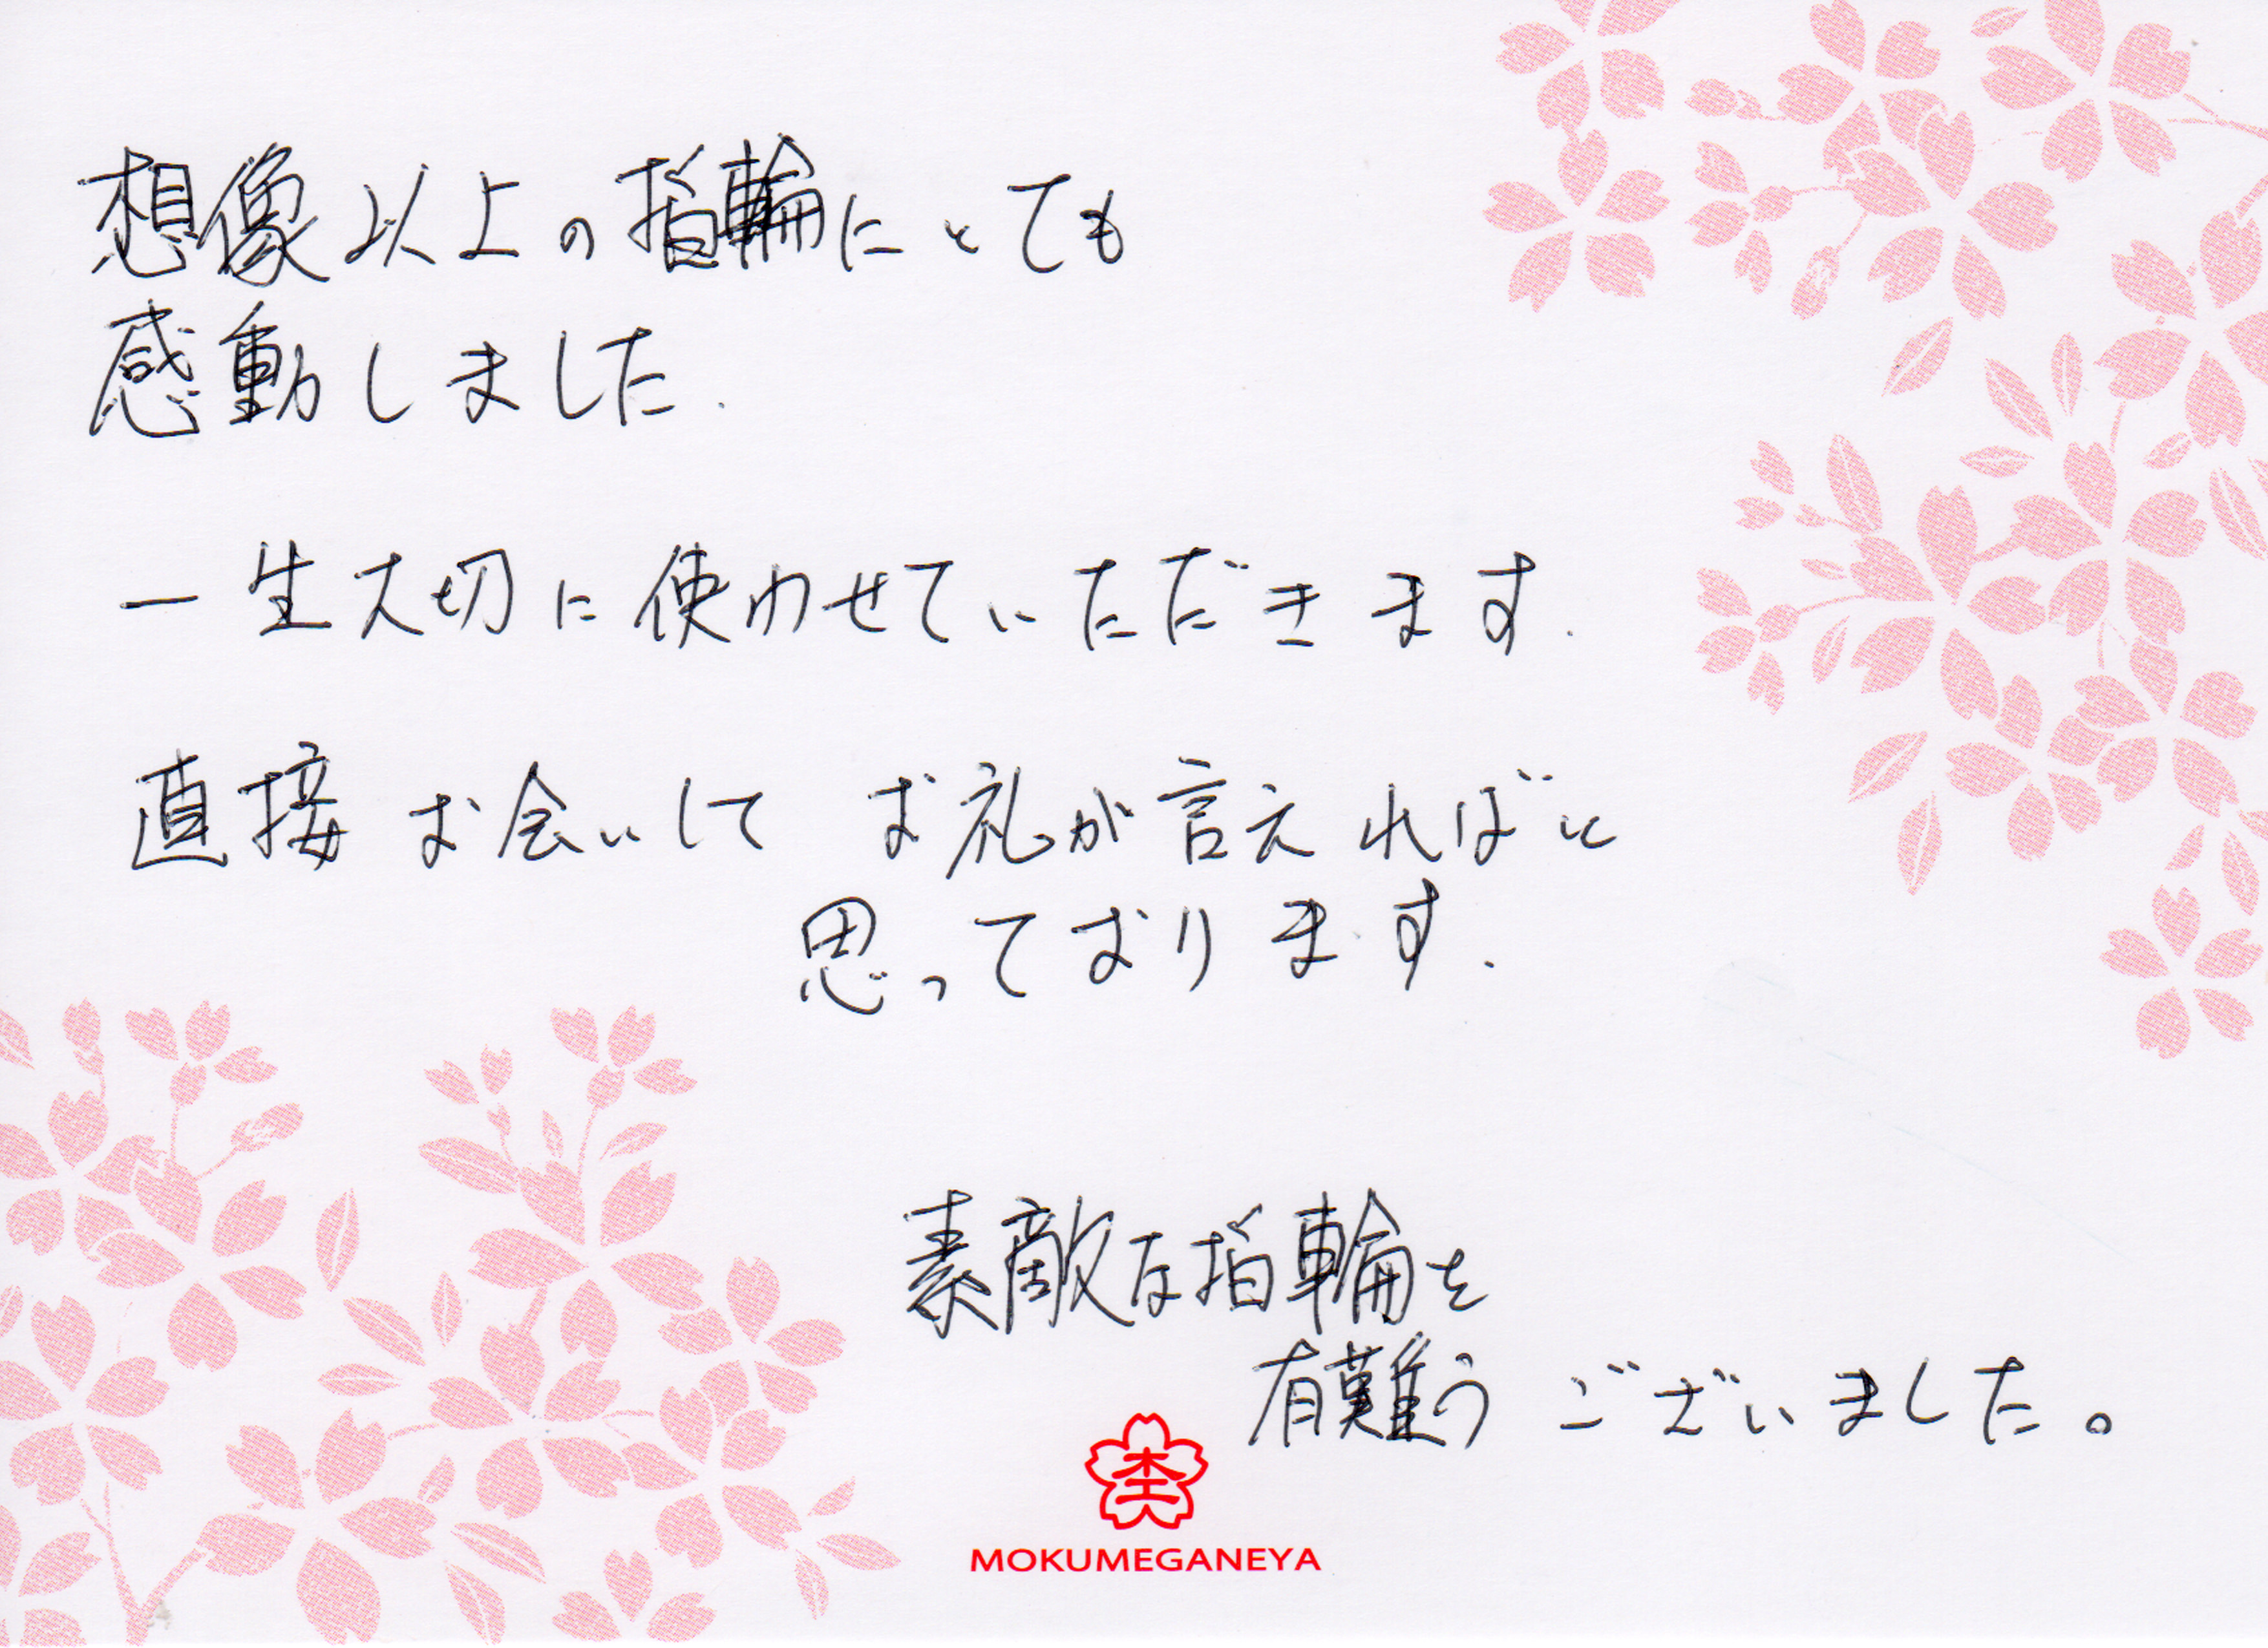 想像以上の指輪にとても
感動しました.
一生大切に使わせていただきます.
直接お会いして お礼が言えればと
思っております.
素敵な指輪を
有難う ございました。
杢
MOKUMEGANEYA